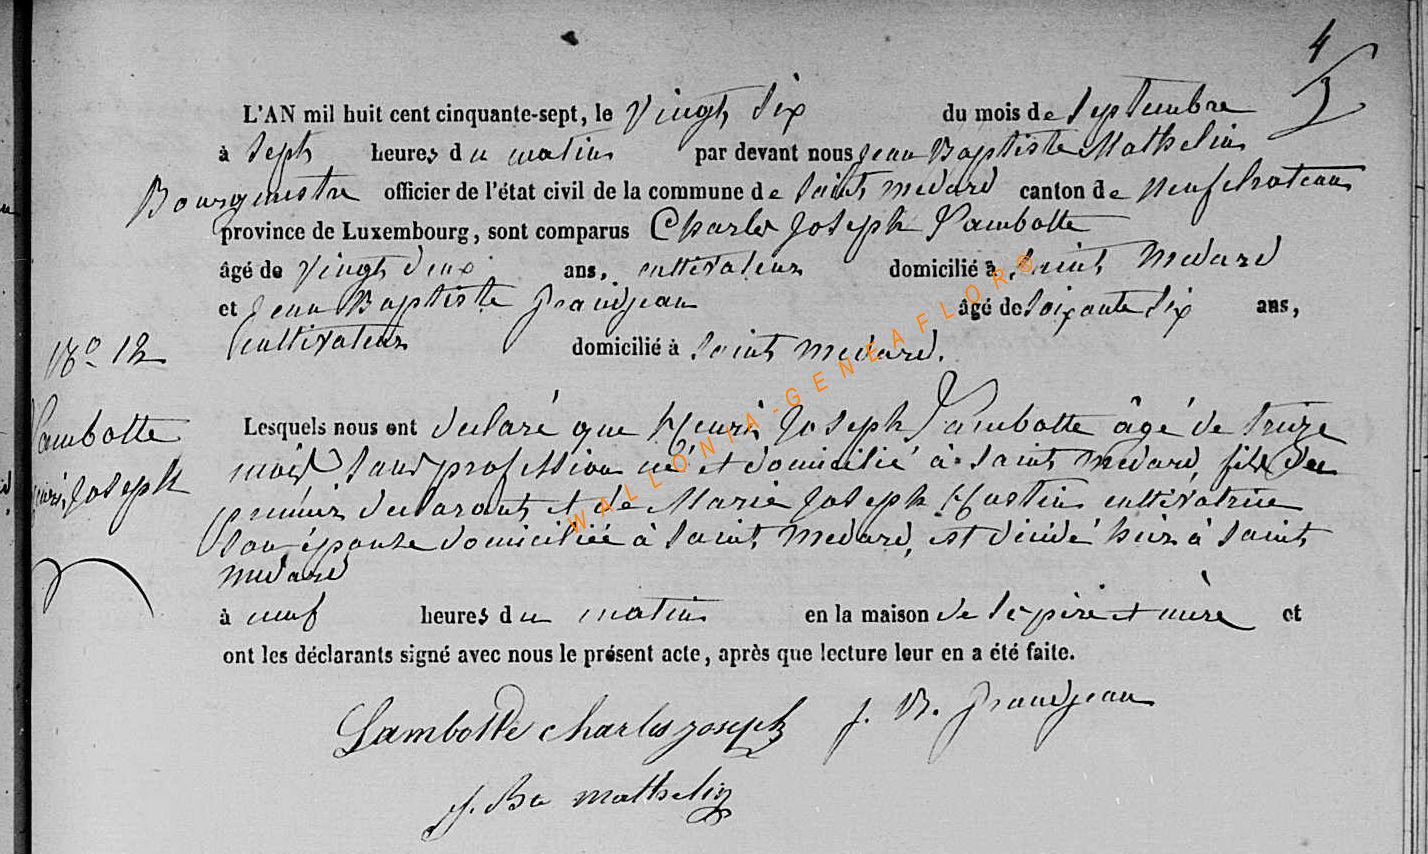 4
3
L'AN mil huit cent cinquante-sept, le Vingt Six du mois de Septembre
à Sept heures du matin par devant nous Jean Baptiste Mathelin
Bourgmestre officier de l'état civil de la commune de Saint medard canton de neufchateau
province de Luxembourg, sont comparus Charles Joseph Lambotte
âgé de Vingt deux ans, cultivateur domicilié à Saint Medard
et Jean Baptiste Grandjean âgé de Soixante Six ans,
cultivateur domicilié à Saint medard.
N° 12
Lambotte
Henri Joseph
Lesquels nous ont declaré que Henri Joseph Lambotte âgé de treize
mois Sans profession né et domicilié à Saint medard, fils du
premier declarant et de Marie Joseph Hustin cultivatrice
Son épouse domiciliée à Saint Medard, est décédé hier à Saint
medard
à neuf heures du matin en la maison de Se père et mère et
ont les déclarants signé avec nous le présent acte, après que lecture leur en a été faite.
Lambotte charles joseph J. B. Grandjean
J. Bte mathelin
WALLONIA-GENEAFLOR®